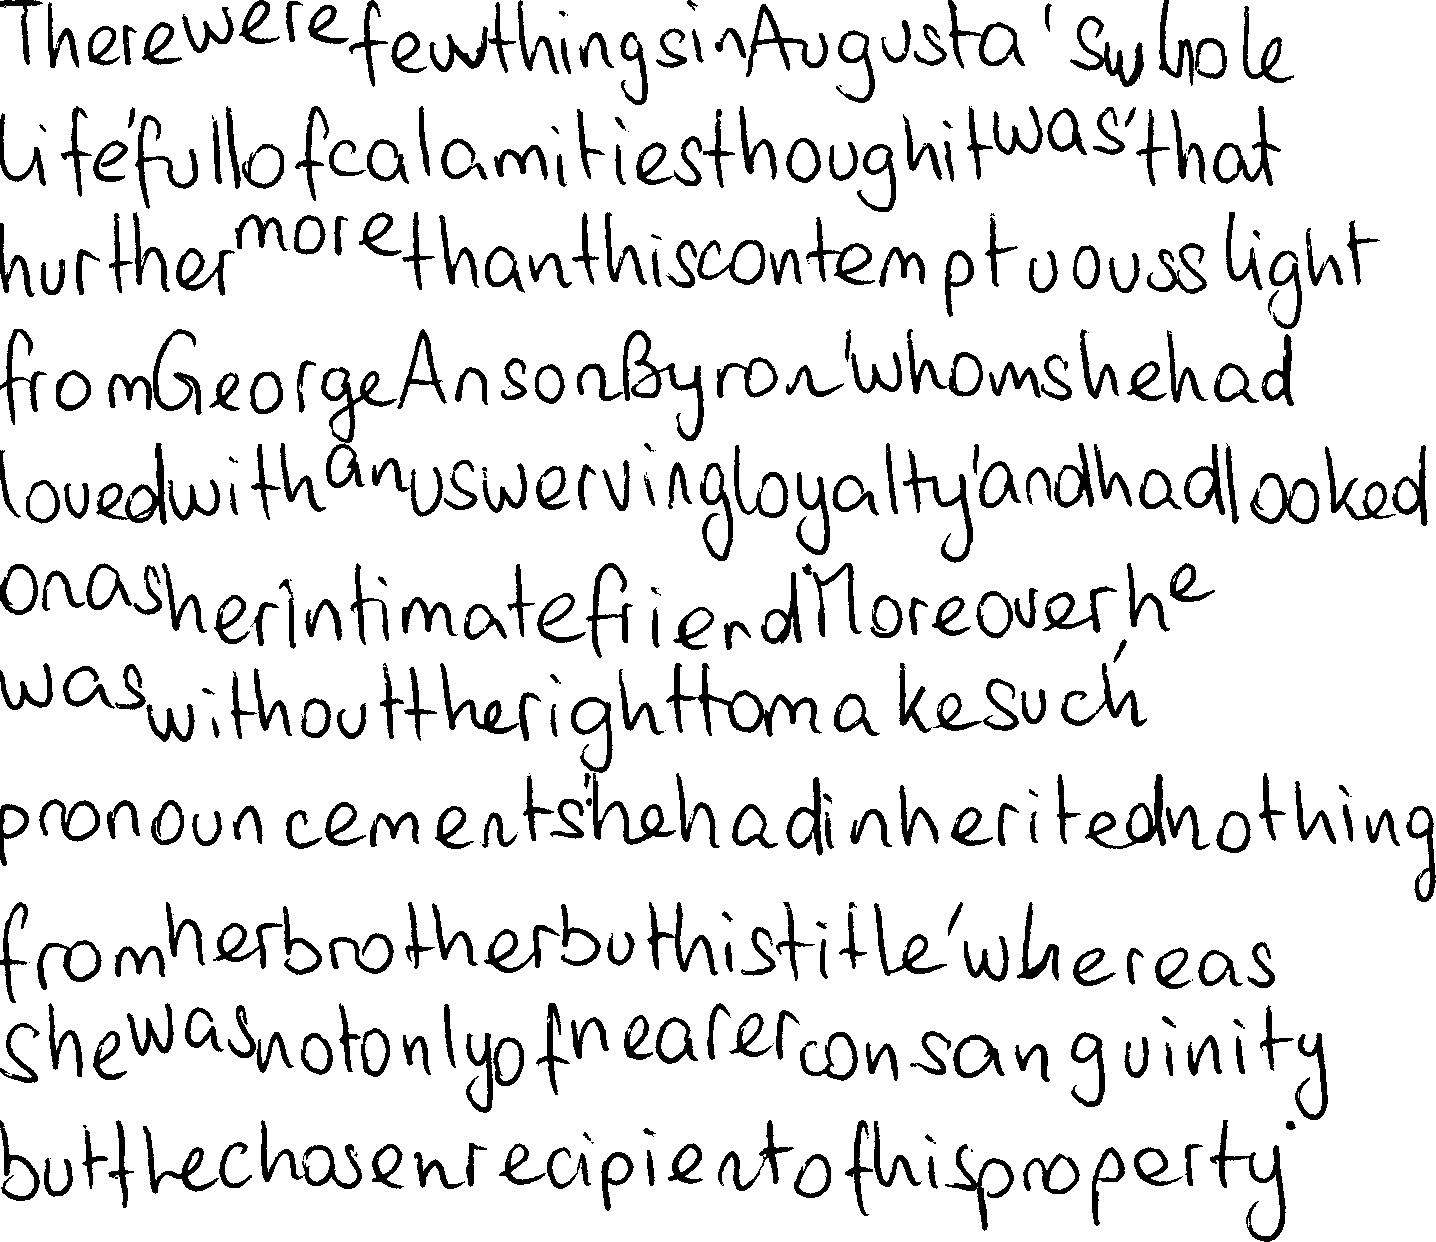 There were few things in Augusta's whole
life, full of calamities though it was, that
hurt her more than this contemptuouus slight
from George Anson Byron, whom she had
loved with an uswerving loyalty, and had looked
on as her intimate friend. Moreover he
was without the right to make such
pronouncements: he had inherited nothing
from her brother but his title, whereas
she was not only of nearer consanguinity
but the chosen recipient of his property.